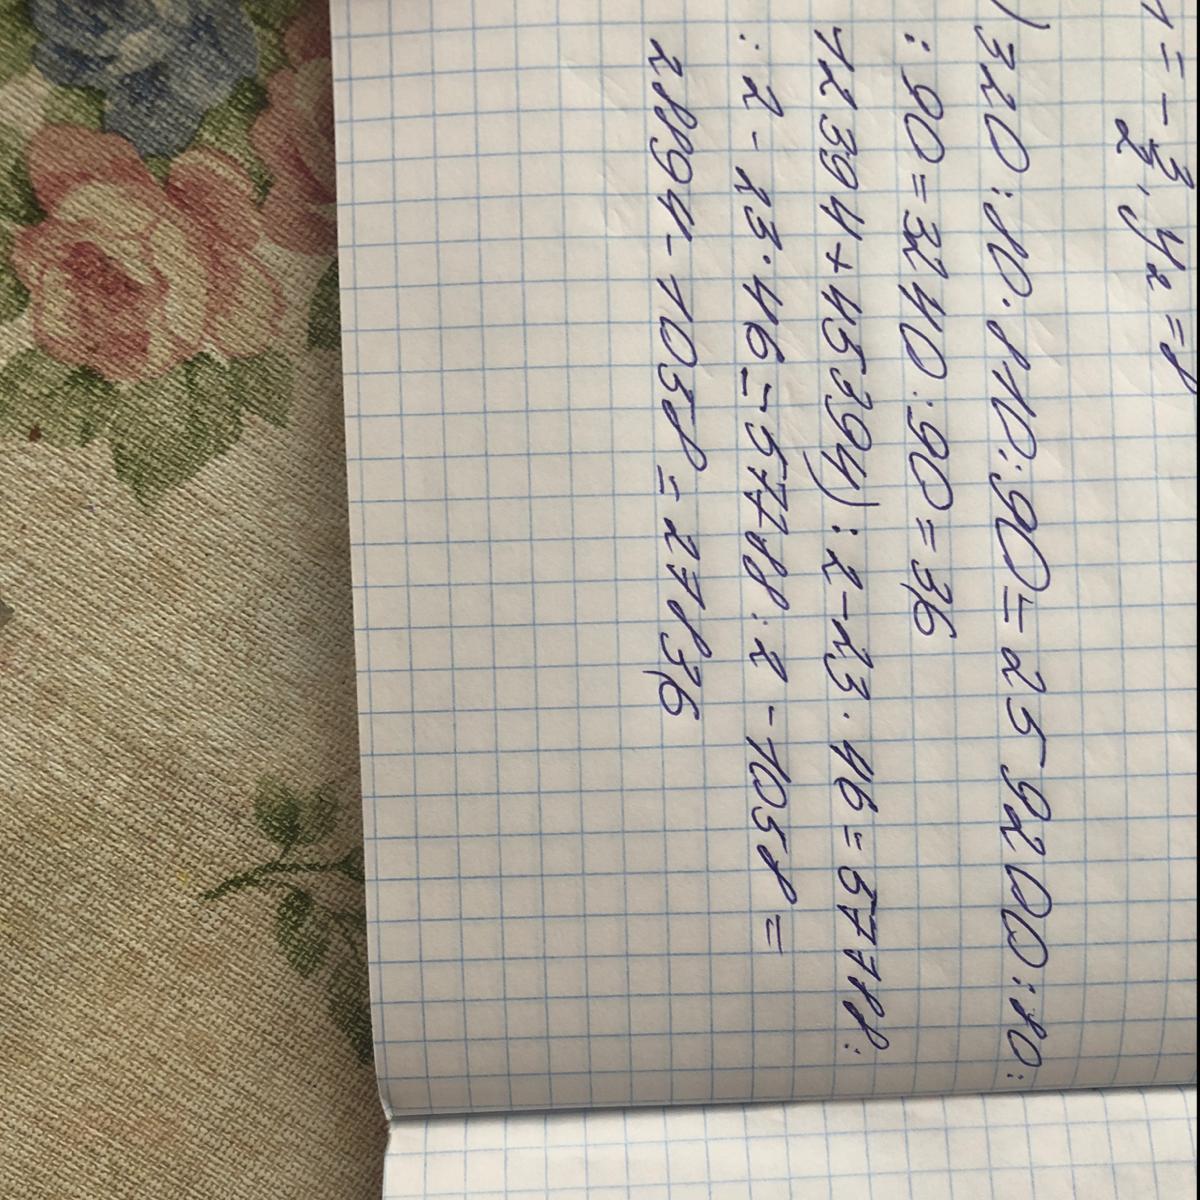 1 = - 3/2, y2 = 8
) 320 : 80 · 810 : 90 = 259200 : 80 :
: 90 = 3240 : 90 = 36
12394 + 45394) : 2 - 23 · 46 = 57788 :
: 2 - 23 · 46 = 57788 : 2 - 1058 =
28894 - 1058 = 27836